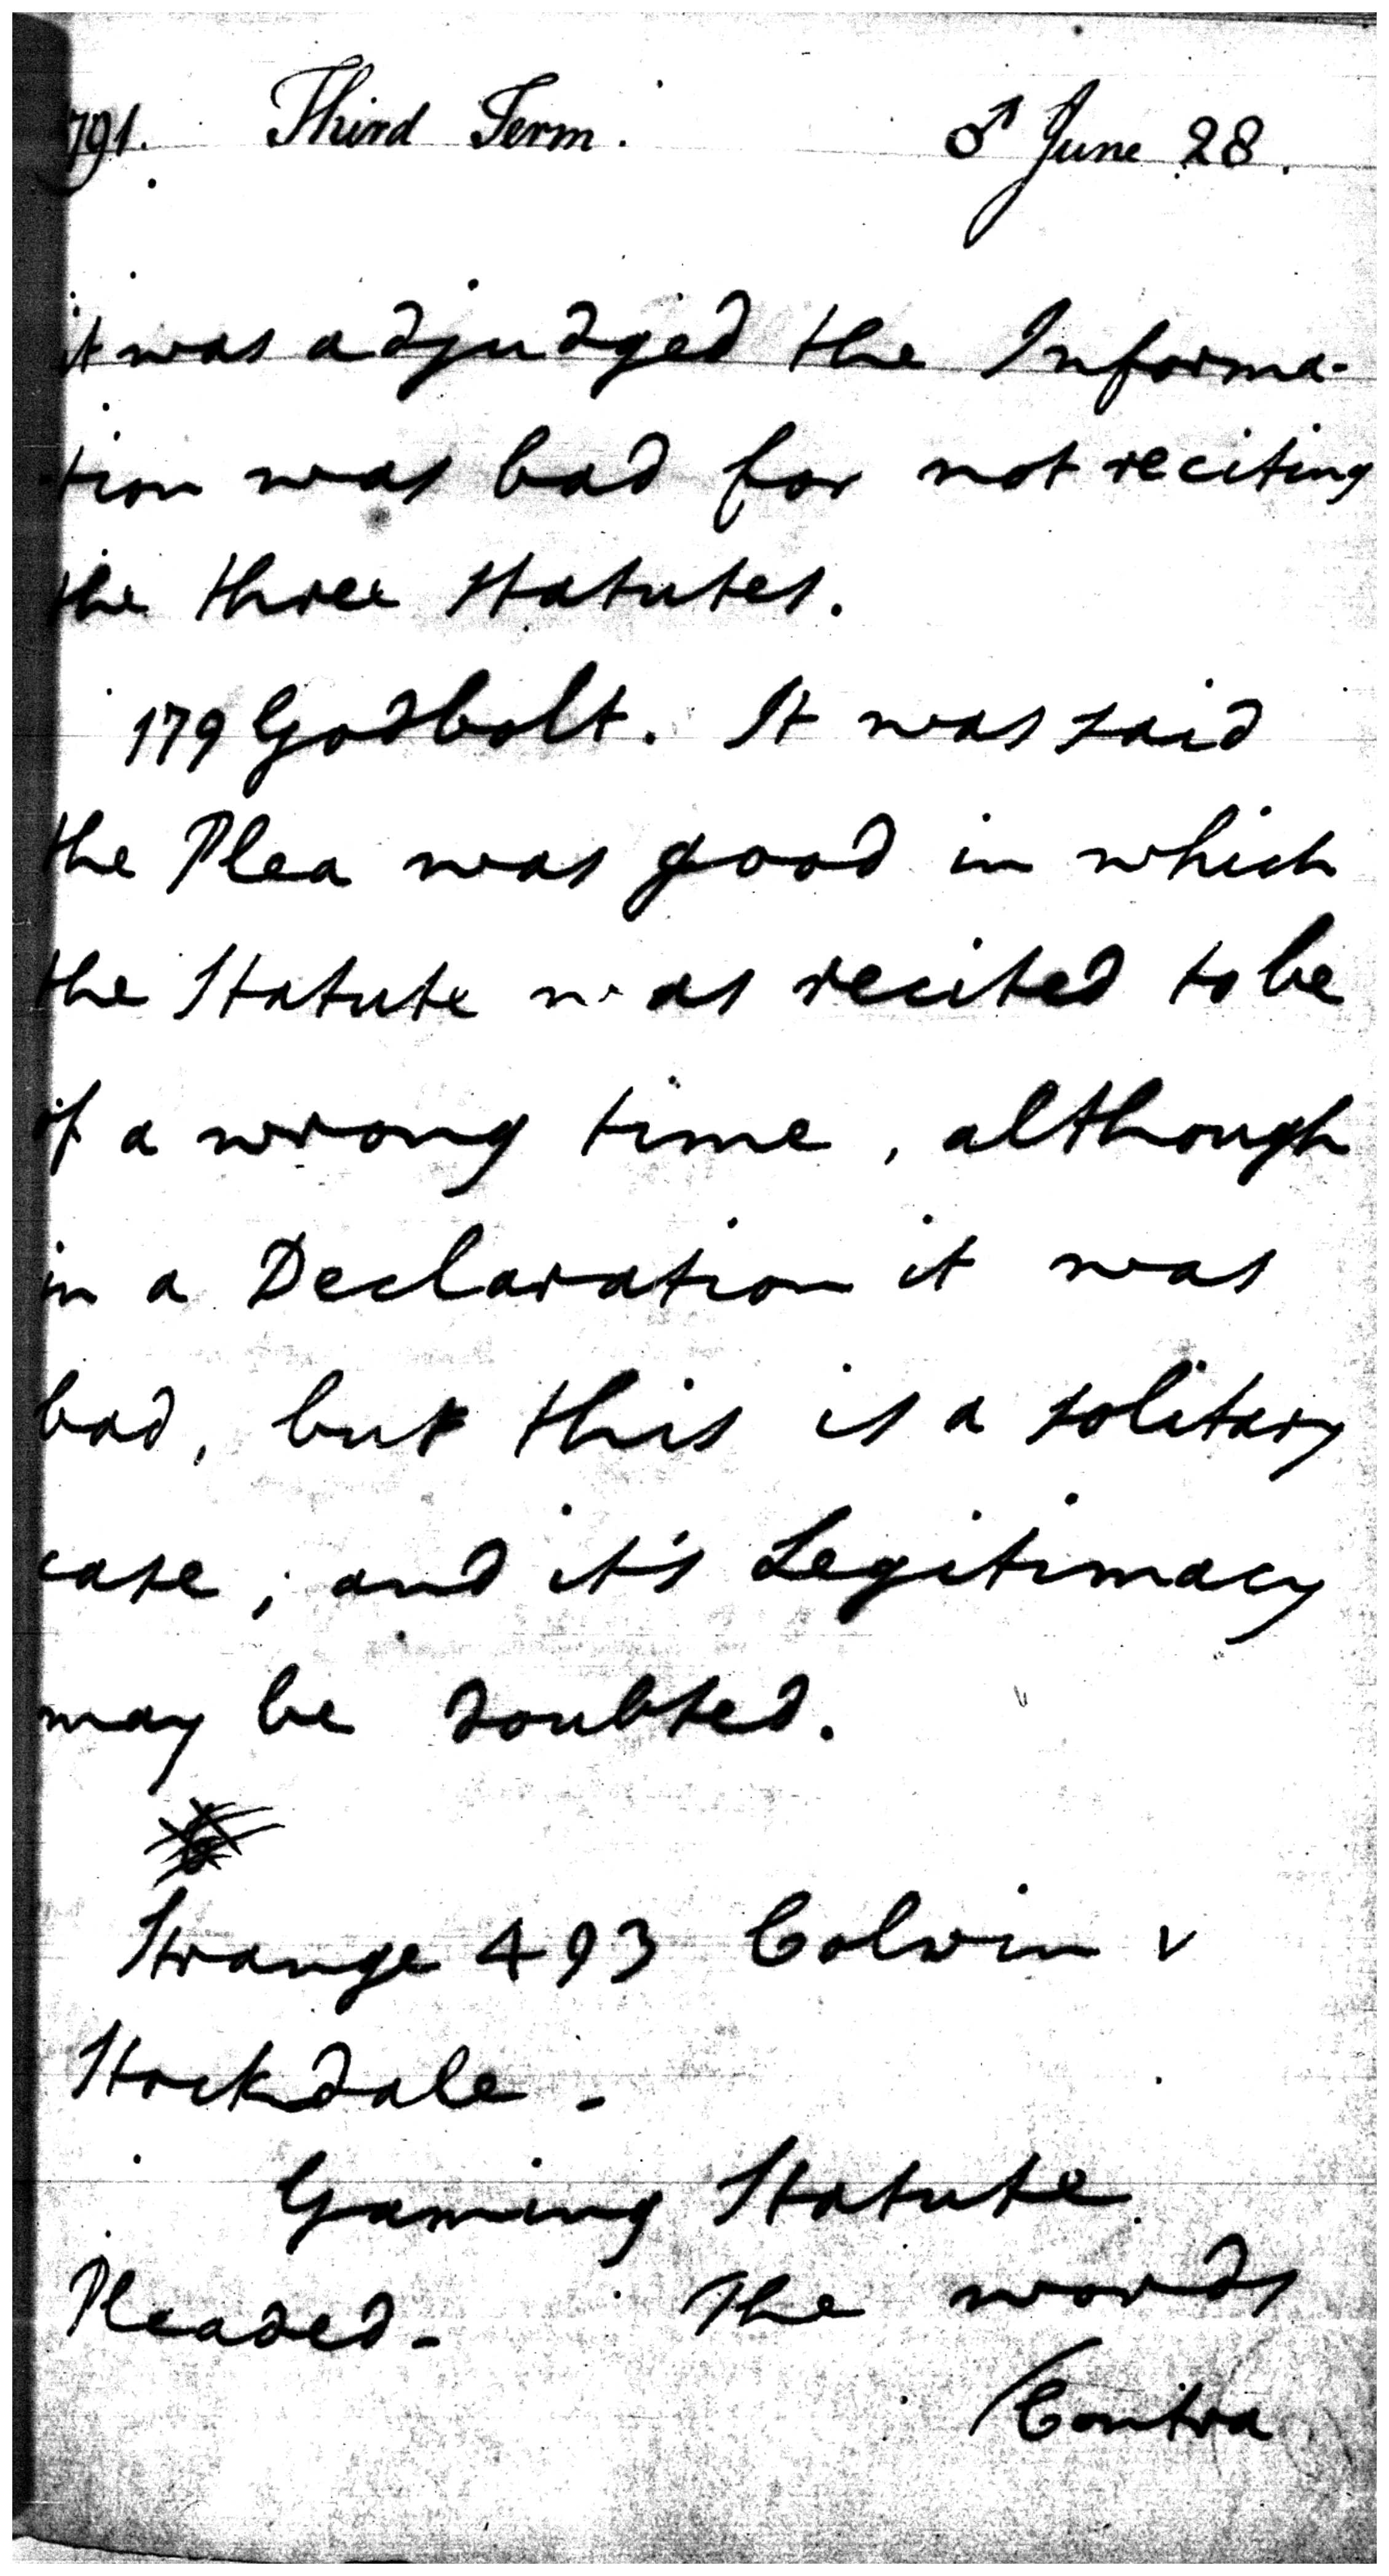 791. Third Term. ♂ June 28.
it was adjudged the Informa-
-tion was bad for not reciting
the three Statutes.
179 Godbolt. It was said
the Plea was good in which
the Statute was recited to be
of a wrong time, although
in a Declaration it was
bad, but this is a solitary
case; and it's Legitimacy
may be doubted.
Strange 493 Colwin v
Stockdale -
Gaming Statute
Pleaded - The words
Contra